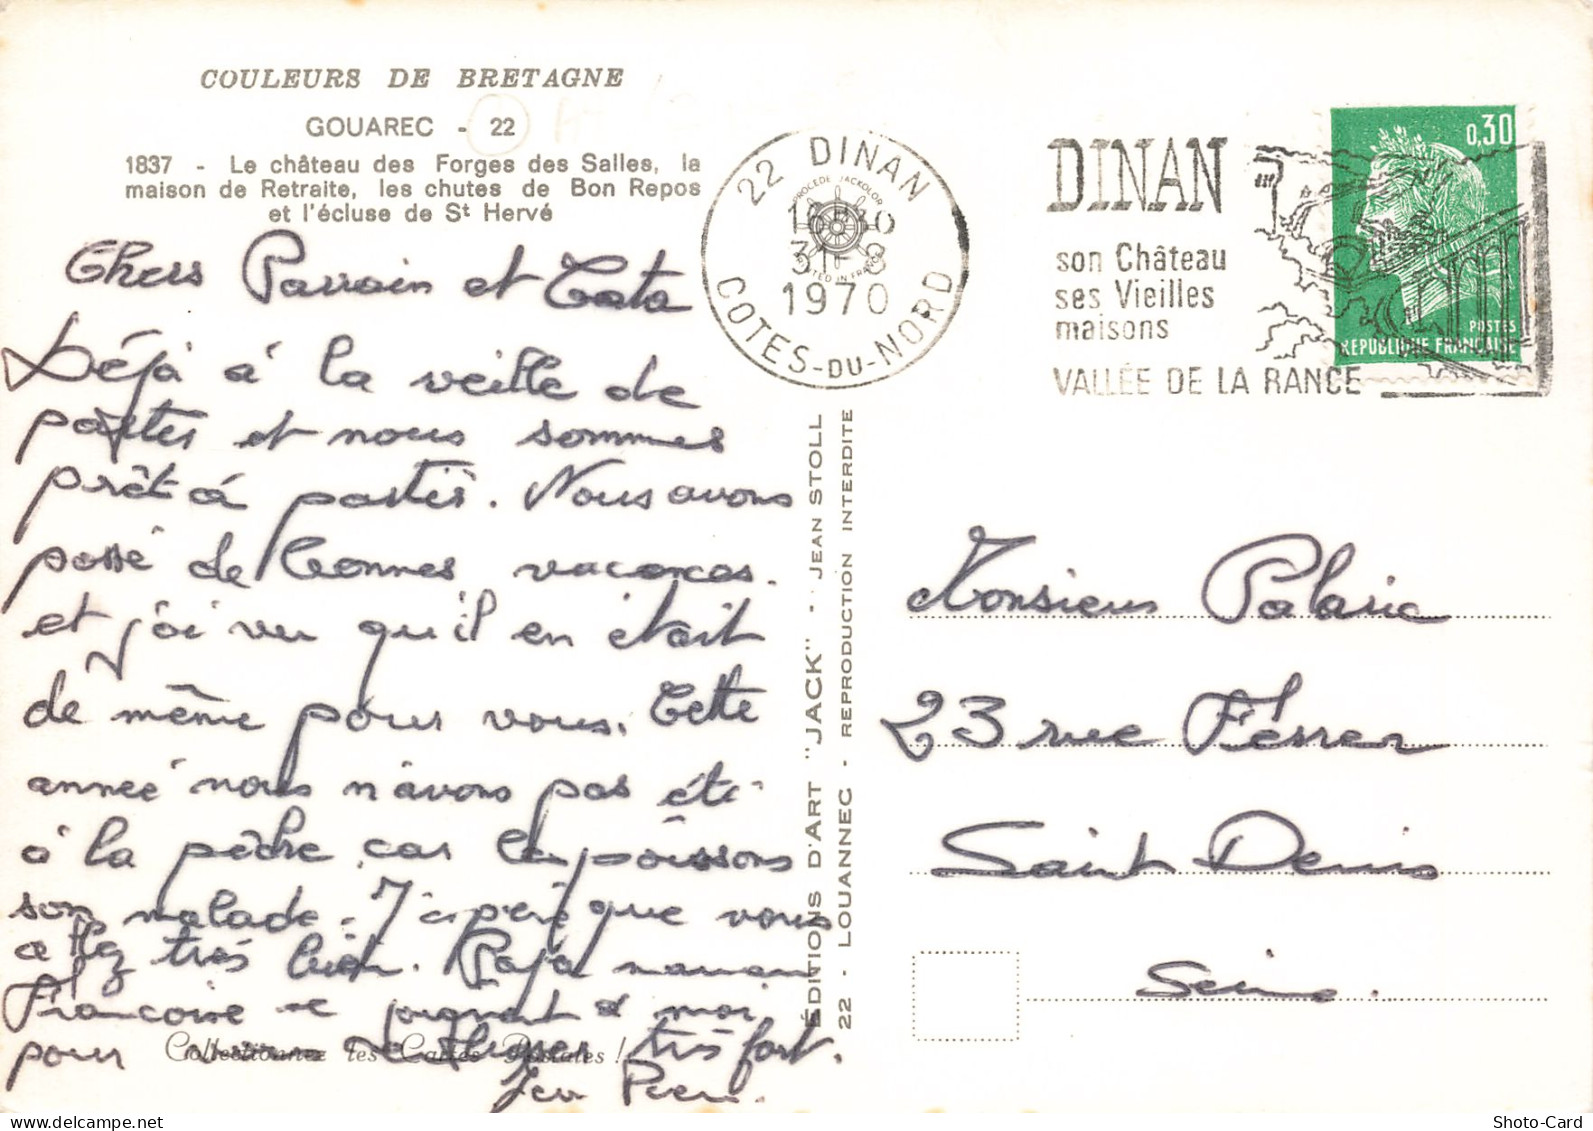 COULEURS DE BRETAGNE
GOUAREC - 22
1837 - Le château des Forges des Salles, la
maison de Retraite, les chutes de Bon Repos
et l'écluse de St Hervé
Chers Parrain et Tata
Déjà à la veille de
partir et nous sommes
prêt à partir. Nous avons
passé de bonnes vacances.
et j'ai vu qu'il en était
de même pour vous. Cette
année nous n'avons pas été
à la pêche car les poissons
son malade. J'espère que vous
allez très bien. Papa maman
Françoise se joignent à moi
pour vous très fort.
Jean Pierre
Collectionnez les Cartes Postales !
22 DINAN
COTES-DU-NORD
31-8
1970
PROCEDE JACKOLOR
PRINTED IN FRANCE
DINAN
son Château
ses Vieilles
maisons
VALLÉE DE LA RANCE
0,30
POSTES
REPUBLIQUE FRANÇAISE
ÉDITIONS D'ART "JACK" - JEAN STOLL
22 - LOUANNEC - REPRODUCTION INTERDITE
Monsieur Palaric
23 rue Férrer
Saint Denis
Seine.
Shoto-Card